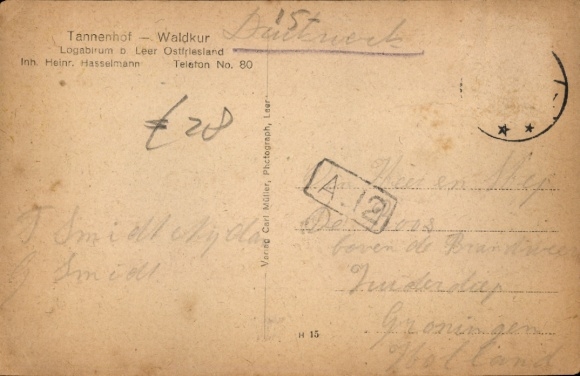 Tannenhof — Waldkur
Logabirum b Leer Ostfriesland
Inh. Heinr. Hasselmann Telefon No. 80
15t
Drukwerk
€ 28
Verlag Carl Müller, Photograph, Leer
A.12
J Smidt
G Smidt
boven de Brandweer
Zuiderdiep
Groningen
Holland
H 15